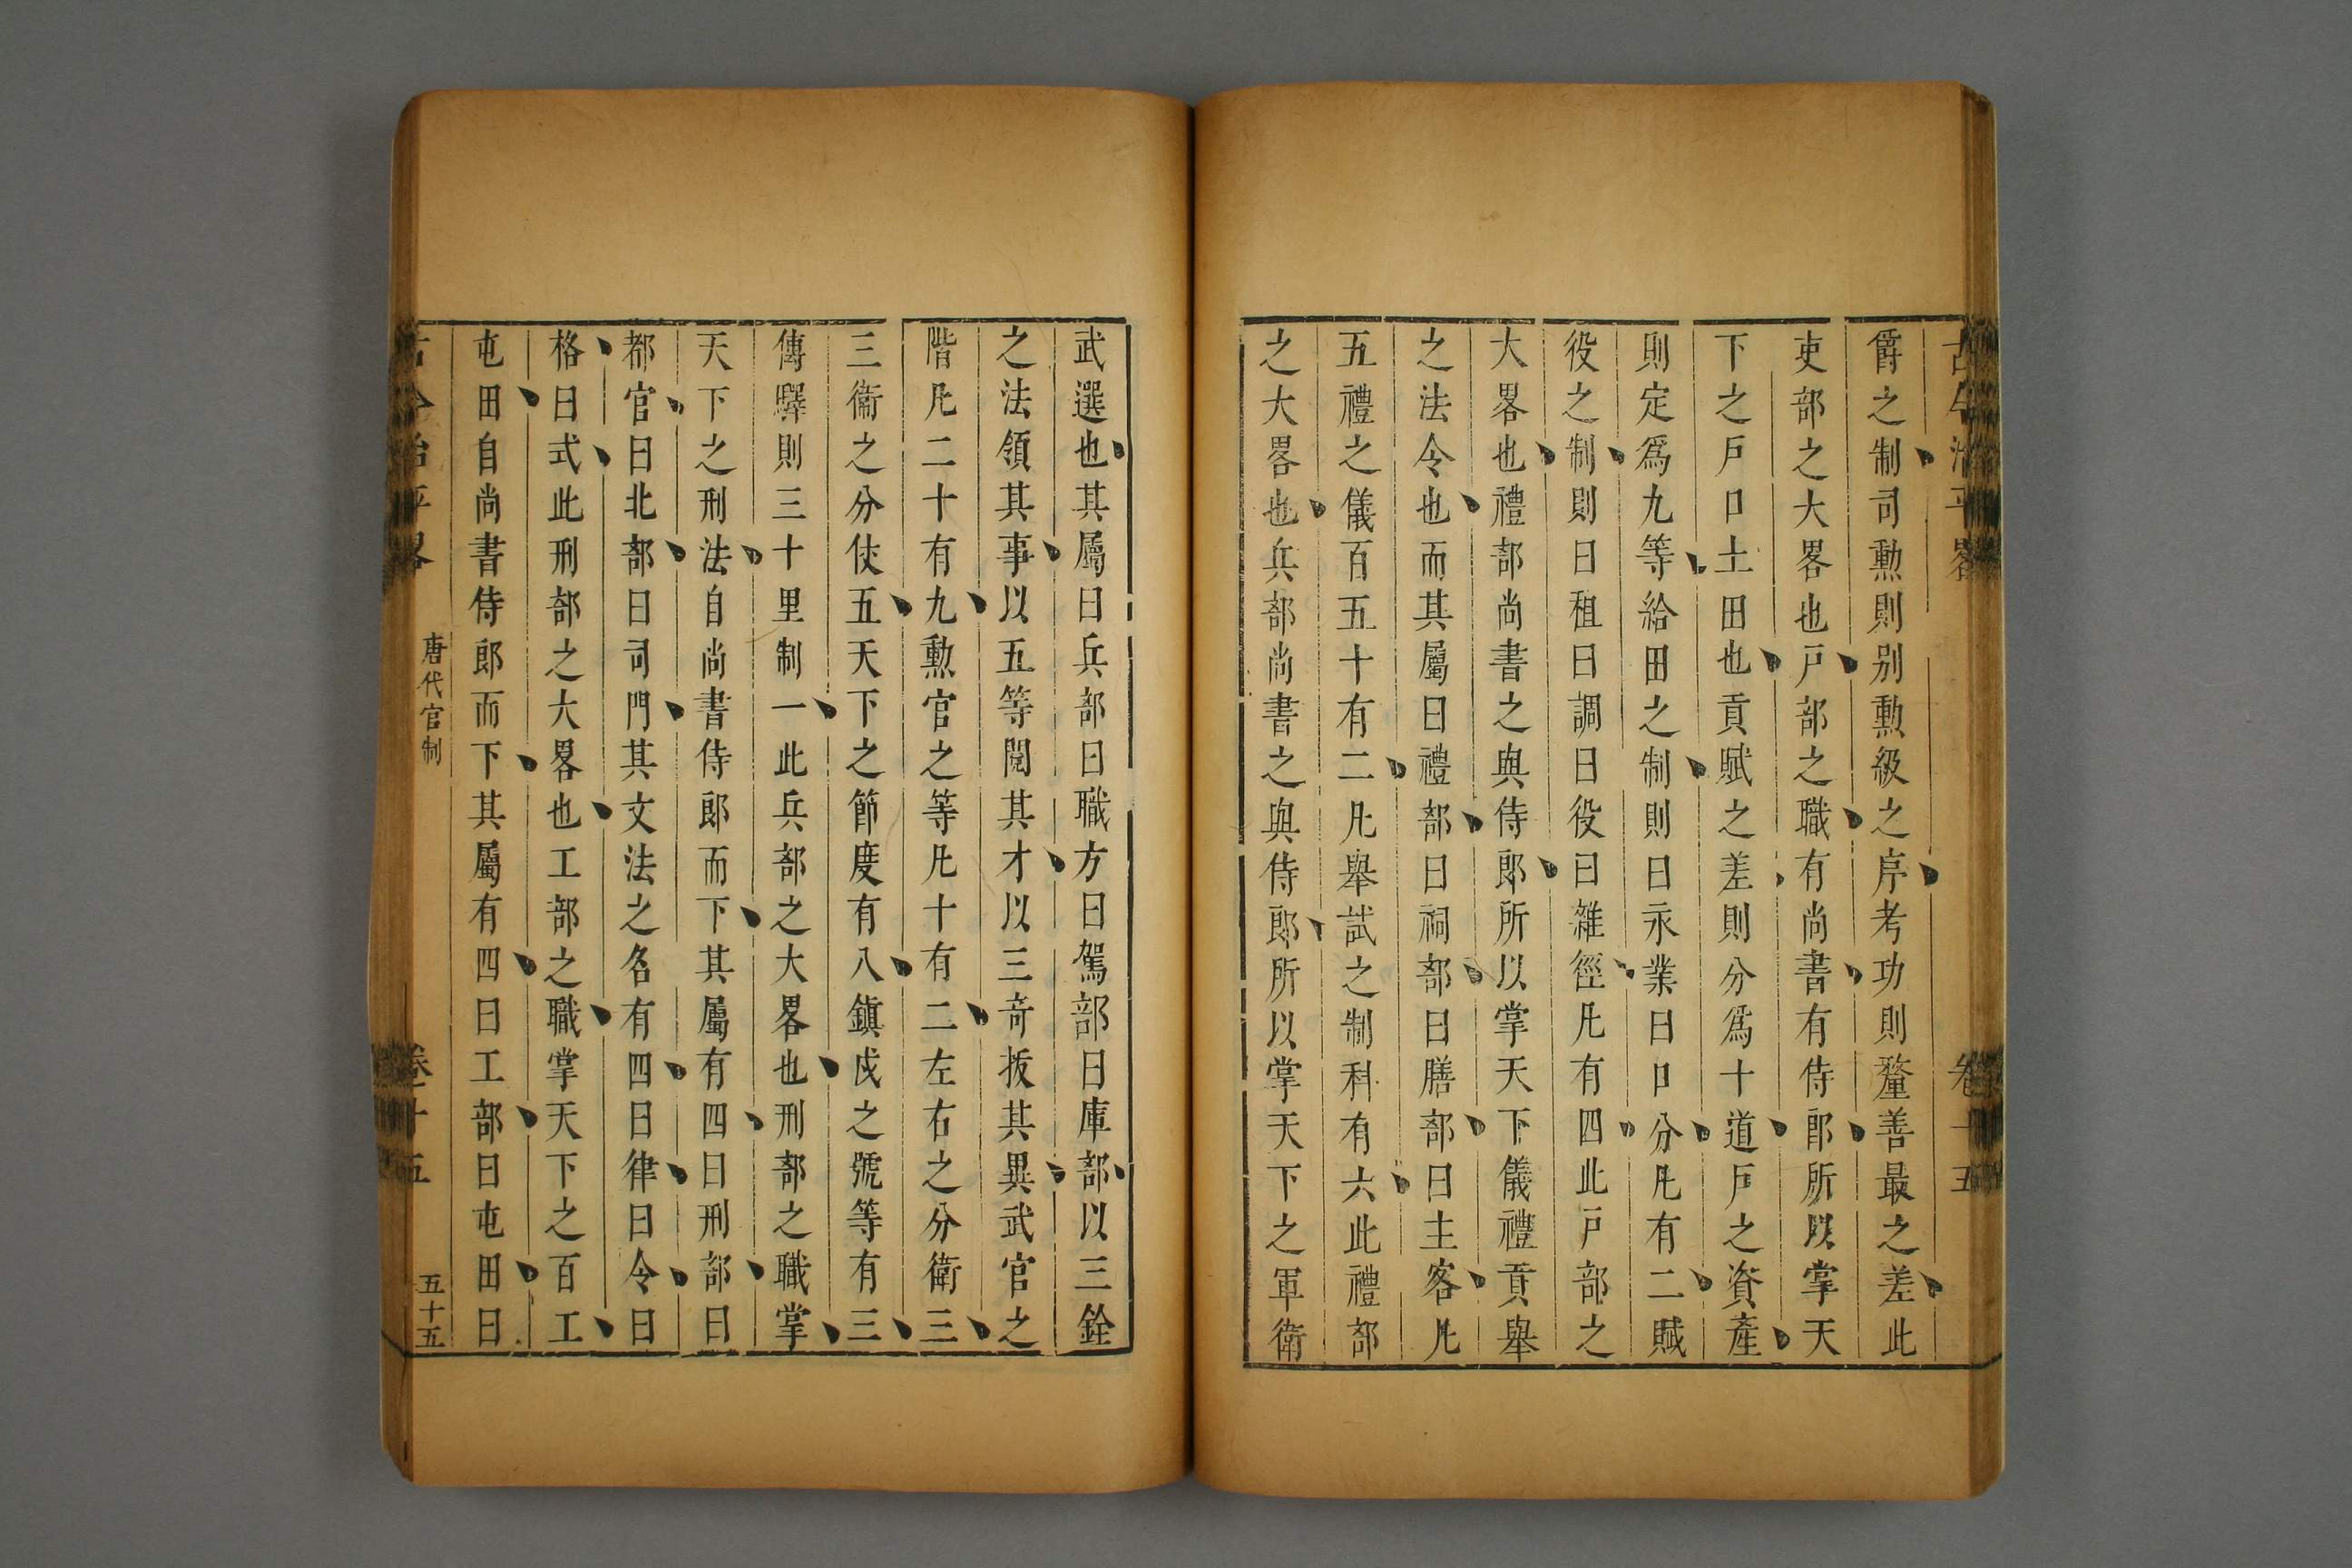 古今治平畧
卷十五
爵之制司勲則别勲級之序考功則釐善最之差此
吏部之大畧也戸部之職有尚書有侍郎所以掌天
下之戸口土田也貢賦之差則分爲十道戸之資產
則定爲九等給田之制則曰永業曰口分凢有二賦
役之制則曰租曰調曰役曰雜徑凢有四此戸部之
大畧也禮部尚書之與侍郎所以掌天下儀禮貢舉
之法令也而其屬曰禮部曰祠部曰膳部曰主客凢
五禮之儀百五十有二凢舉試之制科有六此禮部
之大畧也兵部尚書之與侍郎所以掌天下之軍衛
武選也其屬曰兵部曰職方曰駕部曰庫部以三銓
之法領其事以五等閲其才以三奇拔其異武官之
階凢二十有九勲官之等凢十有二左右之分衛三
三衞之分仗五天下之節度有八鎭戍之號等有三
傳驛則三十里制一此兵部之大畧也刑部之職掌
天下之刑法自尚書侍郎而下其屬有四曰刑部曰
都官曰北部曰司門其文法之名有四曰律曰令曰
格曰式此刑部之大畧也工部之職掌天下之百工
屯田自尚書侍郎而下其屬有四曰工部曰屯田曰
古今治平畧
唐代官制
卷十五
五十五